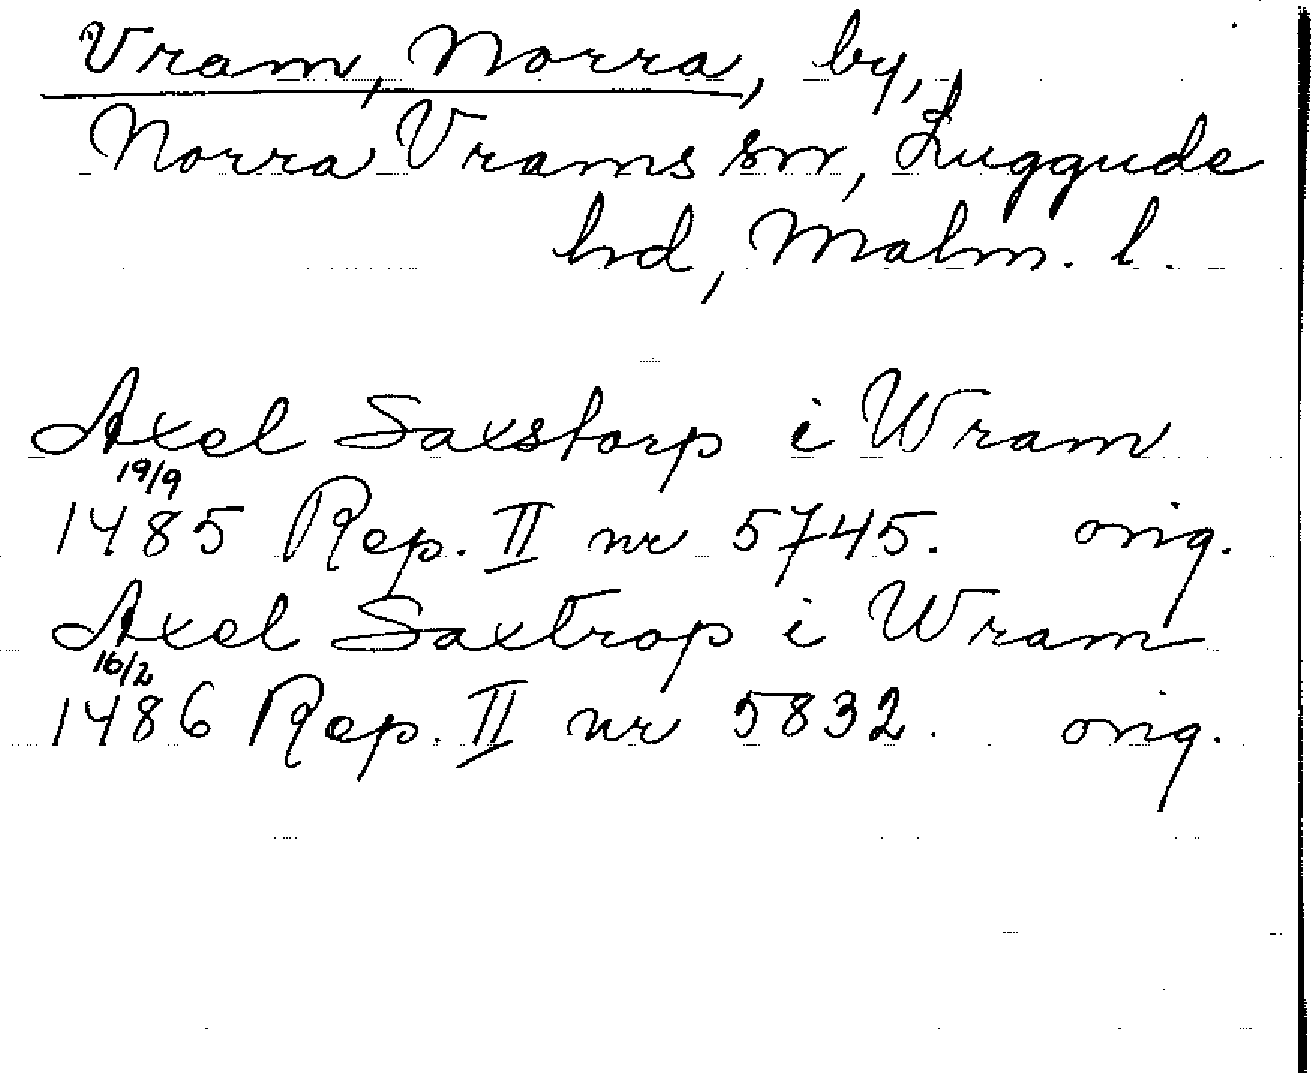 Vram, Norra, by,
Norra Vrams sn, Luggude
hd, Malm. l.
Axel Saxstorp i Wram
19/9
1485 Rep. II nr 5745. orig.
Axel Saxtrop i Wram
16/2
1486 Rep. II nr 5832. orig.